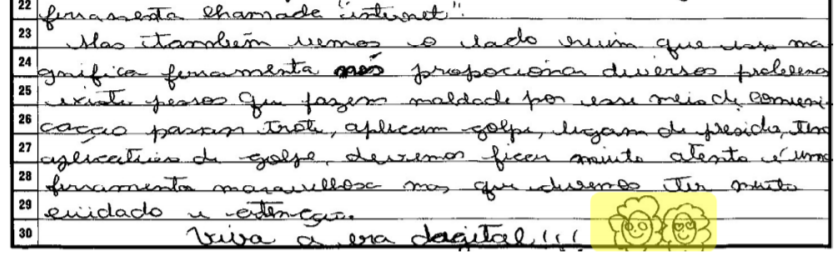 22 ferramenta chamada "internet".
23 Mas também vemos o lado ruim que essa ma
24 gnifica ferramenta nos proporciona diversos problema
25 existe pessoas que fazem maldade por esse meio de comuni
26 cação passam trote, aplicam golpe, ligam de presídio, tem
27 aplicativos de golpe, devemos ficar muito atento é uma
28 ferramenta maravilhosa mas que devemos ter muito
29 cuidado e atenção.
30 Viva a era dagital!!!